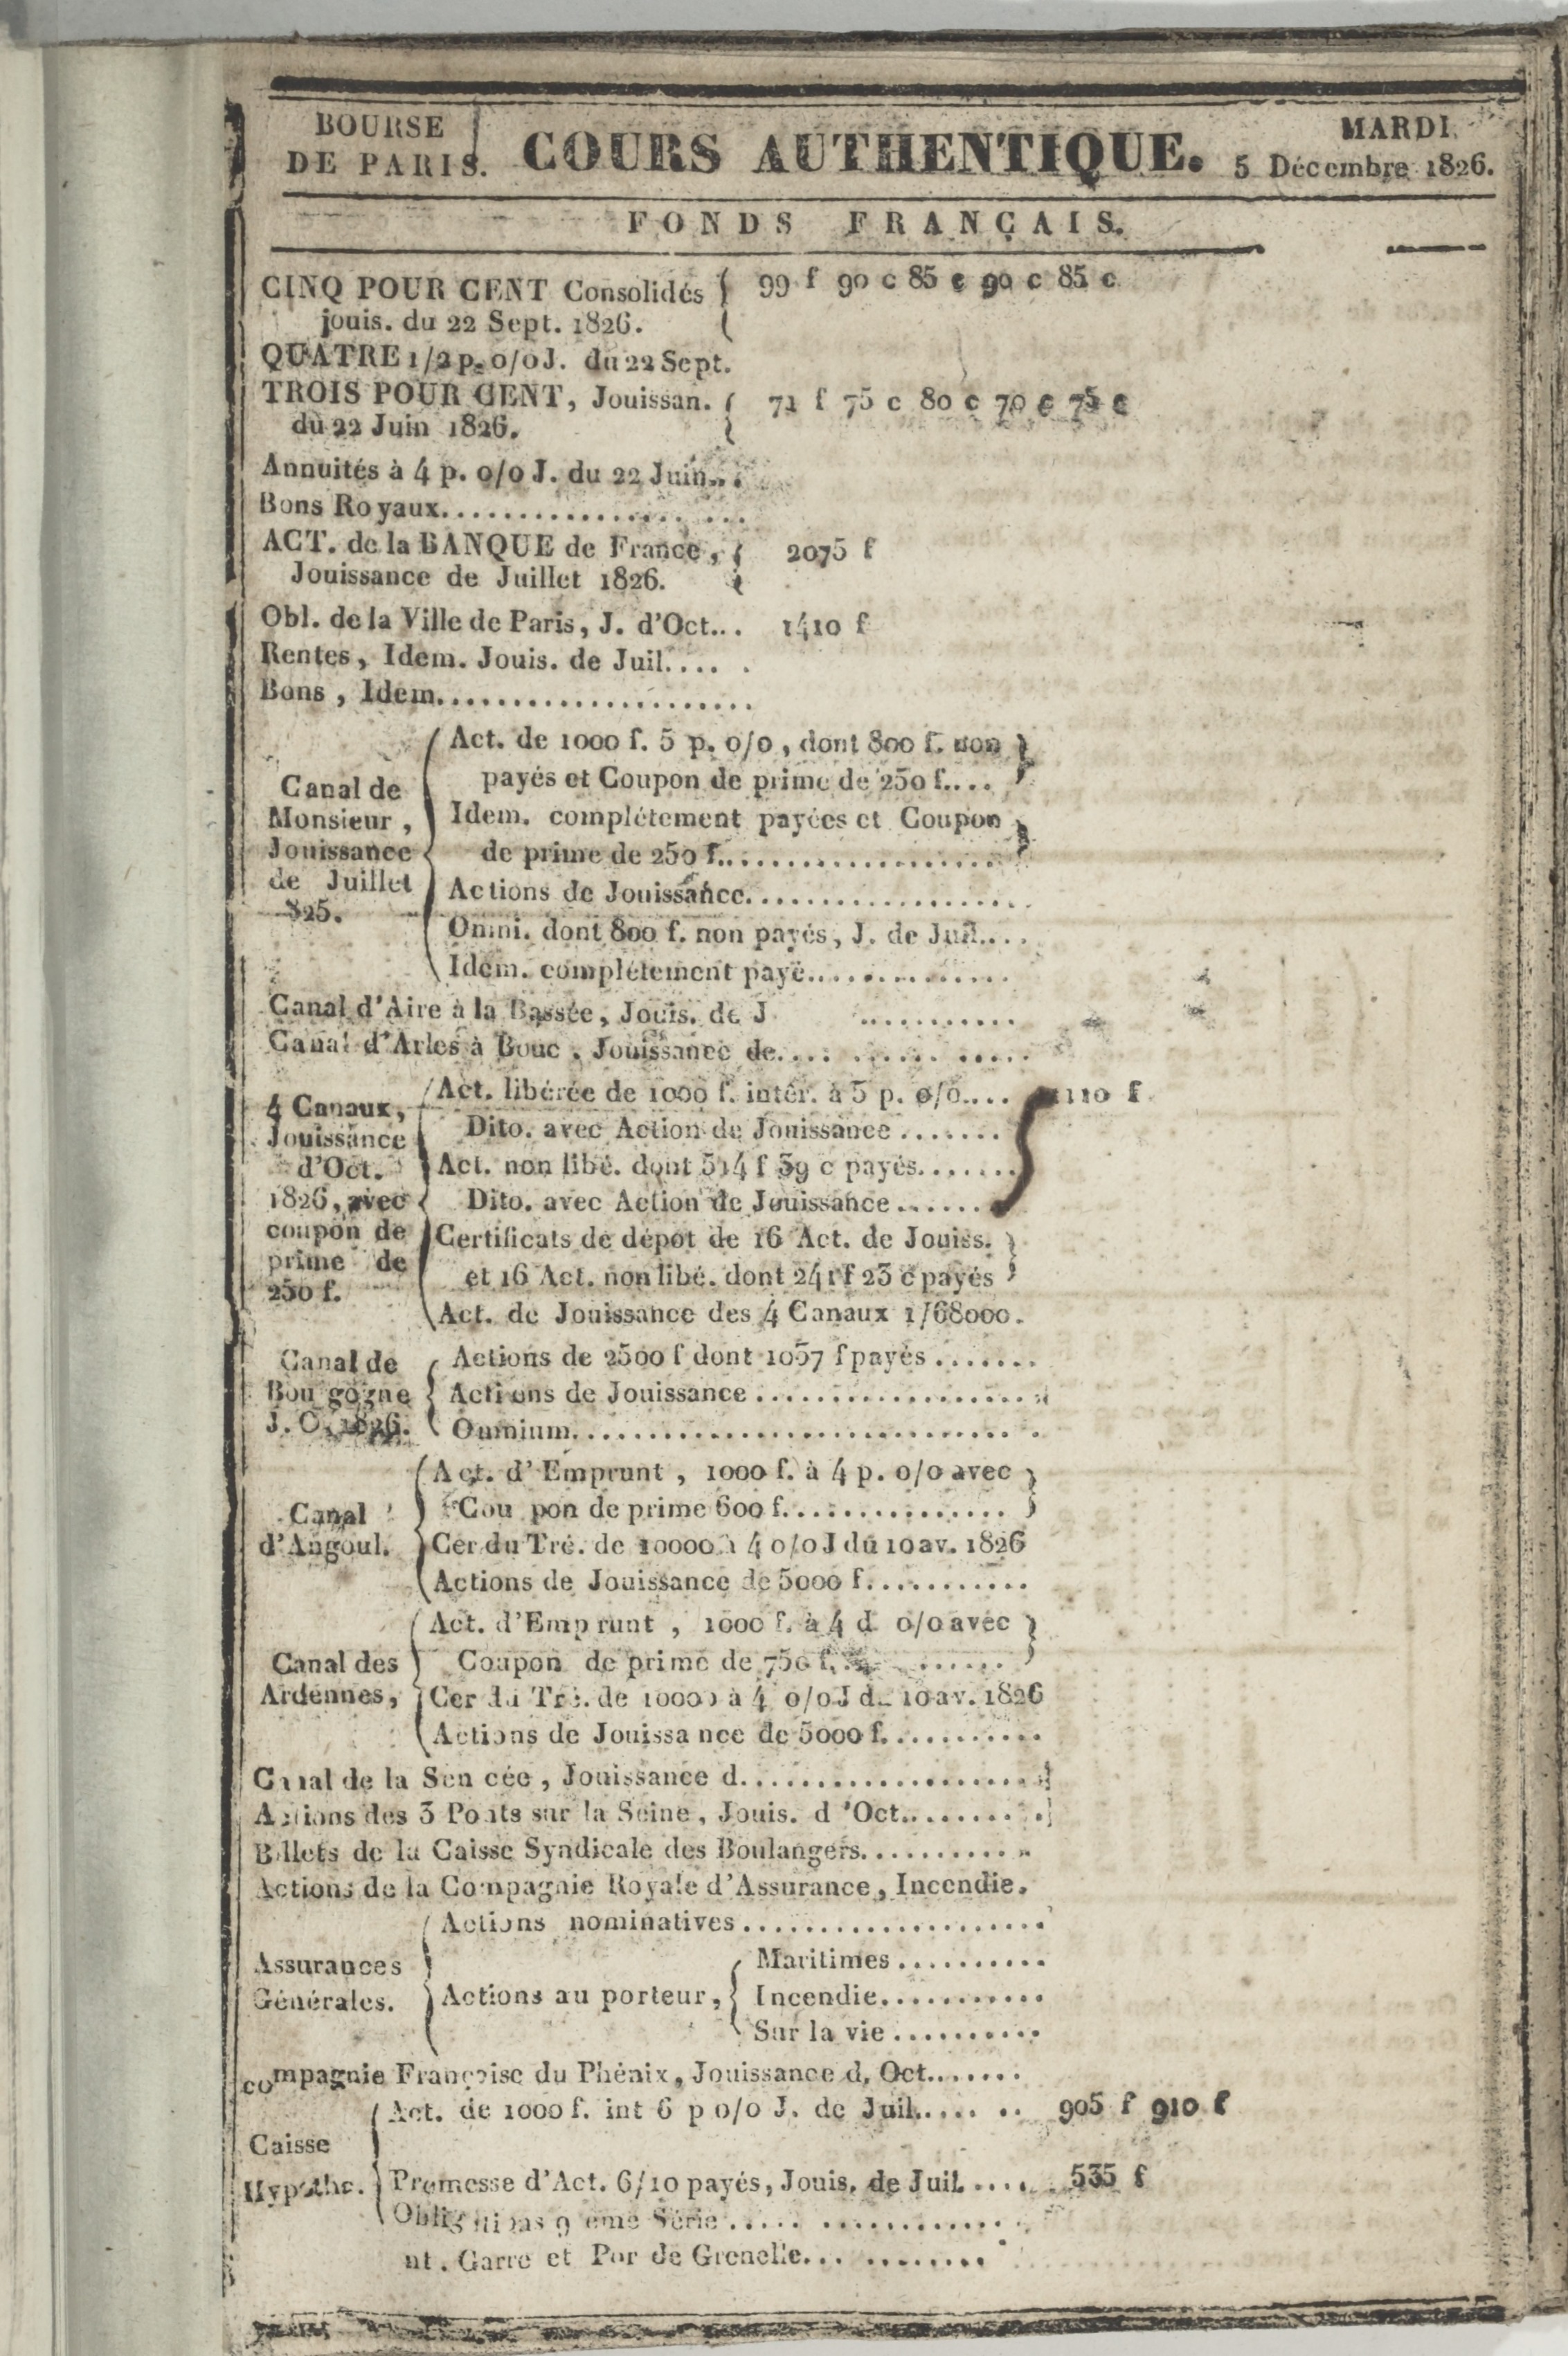 BOURSE
DE PARIS.
COURS AUTHENTIQUE.
MARDI
5 Décembre 1826.
FONDS FRANÇAIS.
CINQ POUR CENT Consolidés { 99 f 90 c 85 c 90 c 85 c
jouis. du 22 Sept. 1826.
QUATRE 1/2 p. 0/0 J. du 22 Sept.
TROIS POUR CENT, Jouissan. { 71 f 75 c 80 c 70 c 75 c
du 22 Juin 1826.
Annuités à 4 p. 0/0 J. du 22 Juin...
Bons Royaux...................
ACT. de la BANQUE de France, { 2075 f
Jouissance de Juillet 1826.
Obl. de la Ville de Paris, J. d'Oct... 1410 f
Rentes, Idem. Jouis. de Juil.... .
Bons, Idem.....................
Canal de
Monsieur,
Jouissance
de Juillet
825.
Act. de 1000 f. 5 p. 0/0, dont 800 f. non }
payés et Coupon de prime de 250 f....
Idem. complétement payées et Coupon }
de prime de 250 f...................
Actions de Jouissance...................
Omni. dont 800 f. non payés, J. de Juil....
Idem. complétement payé..............
Canal d'Aire à la Bassée, Jouis. de J ..........
Canal d'Arles à Bouc, Jouissance de.... ...... .....
4 Canaux,
Jouissance
d'Oct.
1826, avec
coupon de
prime de
250 f.
Act. libérée de 1000 f. intér. à 5 p. 0/0.... 1110 f
Dito. avec Action de Jouissance .......
Act. non libé. dont 514 f 39 c payés.......
Dito. avec Action de Jouissance .......
Certificats de dépot de 16 Act. de Jouiss. }
et 16 Act. non libé. dont 241 f 23 c payés
Act. de Jouissance des 4 Canaux 1/68000.
Canal de
Bou gogne
J. O. 1826.
Actions de 2500 f dont 1057 f payés .......
Actions de Jouissance ...................
Omnium..............................
Canal
d'Angoul.
Act. d'Emprunt, 1000 f. à 4 p. 0/0 avec }
Cou pon de prime 600 f...............
Cer du Tré. de 10000 à 4 0/0 J du 10 av. 1826
Actions de Jouissance de 5000 f...........
Canal des
Ardennes,
Act. d'Emp runt, 1000 f. à 4 d 0/0 avec }
Coupon de prime de 750 f. ......
Cer du Tré. de 10000 à 4 0/0 J d 10 av. 1826
Actions de Jouissa nce de 5000 f...........
Canal de la Sen cée, Jouissance d...................
Actions des 3 Ponts sur la Seine, Jouis. d 'Oct.........
Billets de la Caisse Syndicale des Boulangers..........
Actions de la Compagnie Royale d'Assurance, Incendie.
Assurances
Générales.
Actions nominatives ....................
Actions au porteur,
Maritimes ..........
Incendie...........
Sur la vie ..........
compagnie Françoise du Phénix, Jouissance d, Oct.......
Caisse
Hypothe.
Act. de 1000 f. int 6 p 0/0 J. de Juil..... .. 905 f 910 f
Promesse d'Act. 6/10 payés, Jouis. de Juil..... 535 f
Obligations 9 eme Série ..... ............
nt. Garre et Por de Grenelle... ........